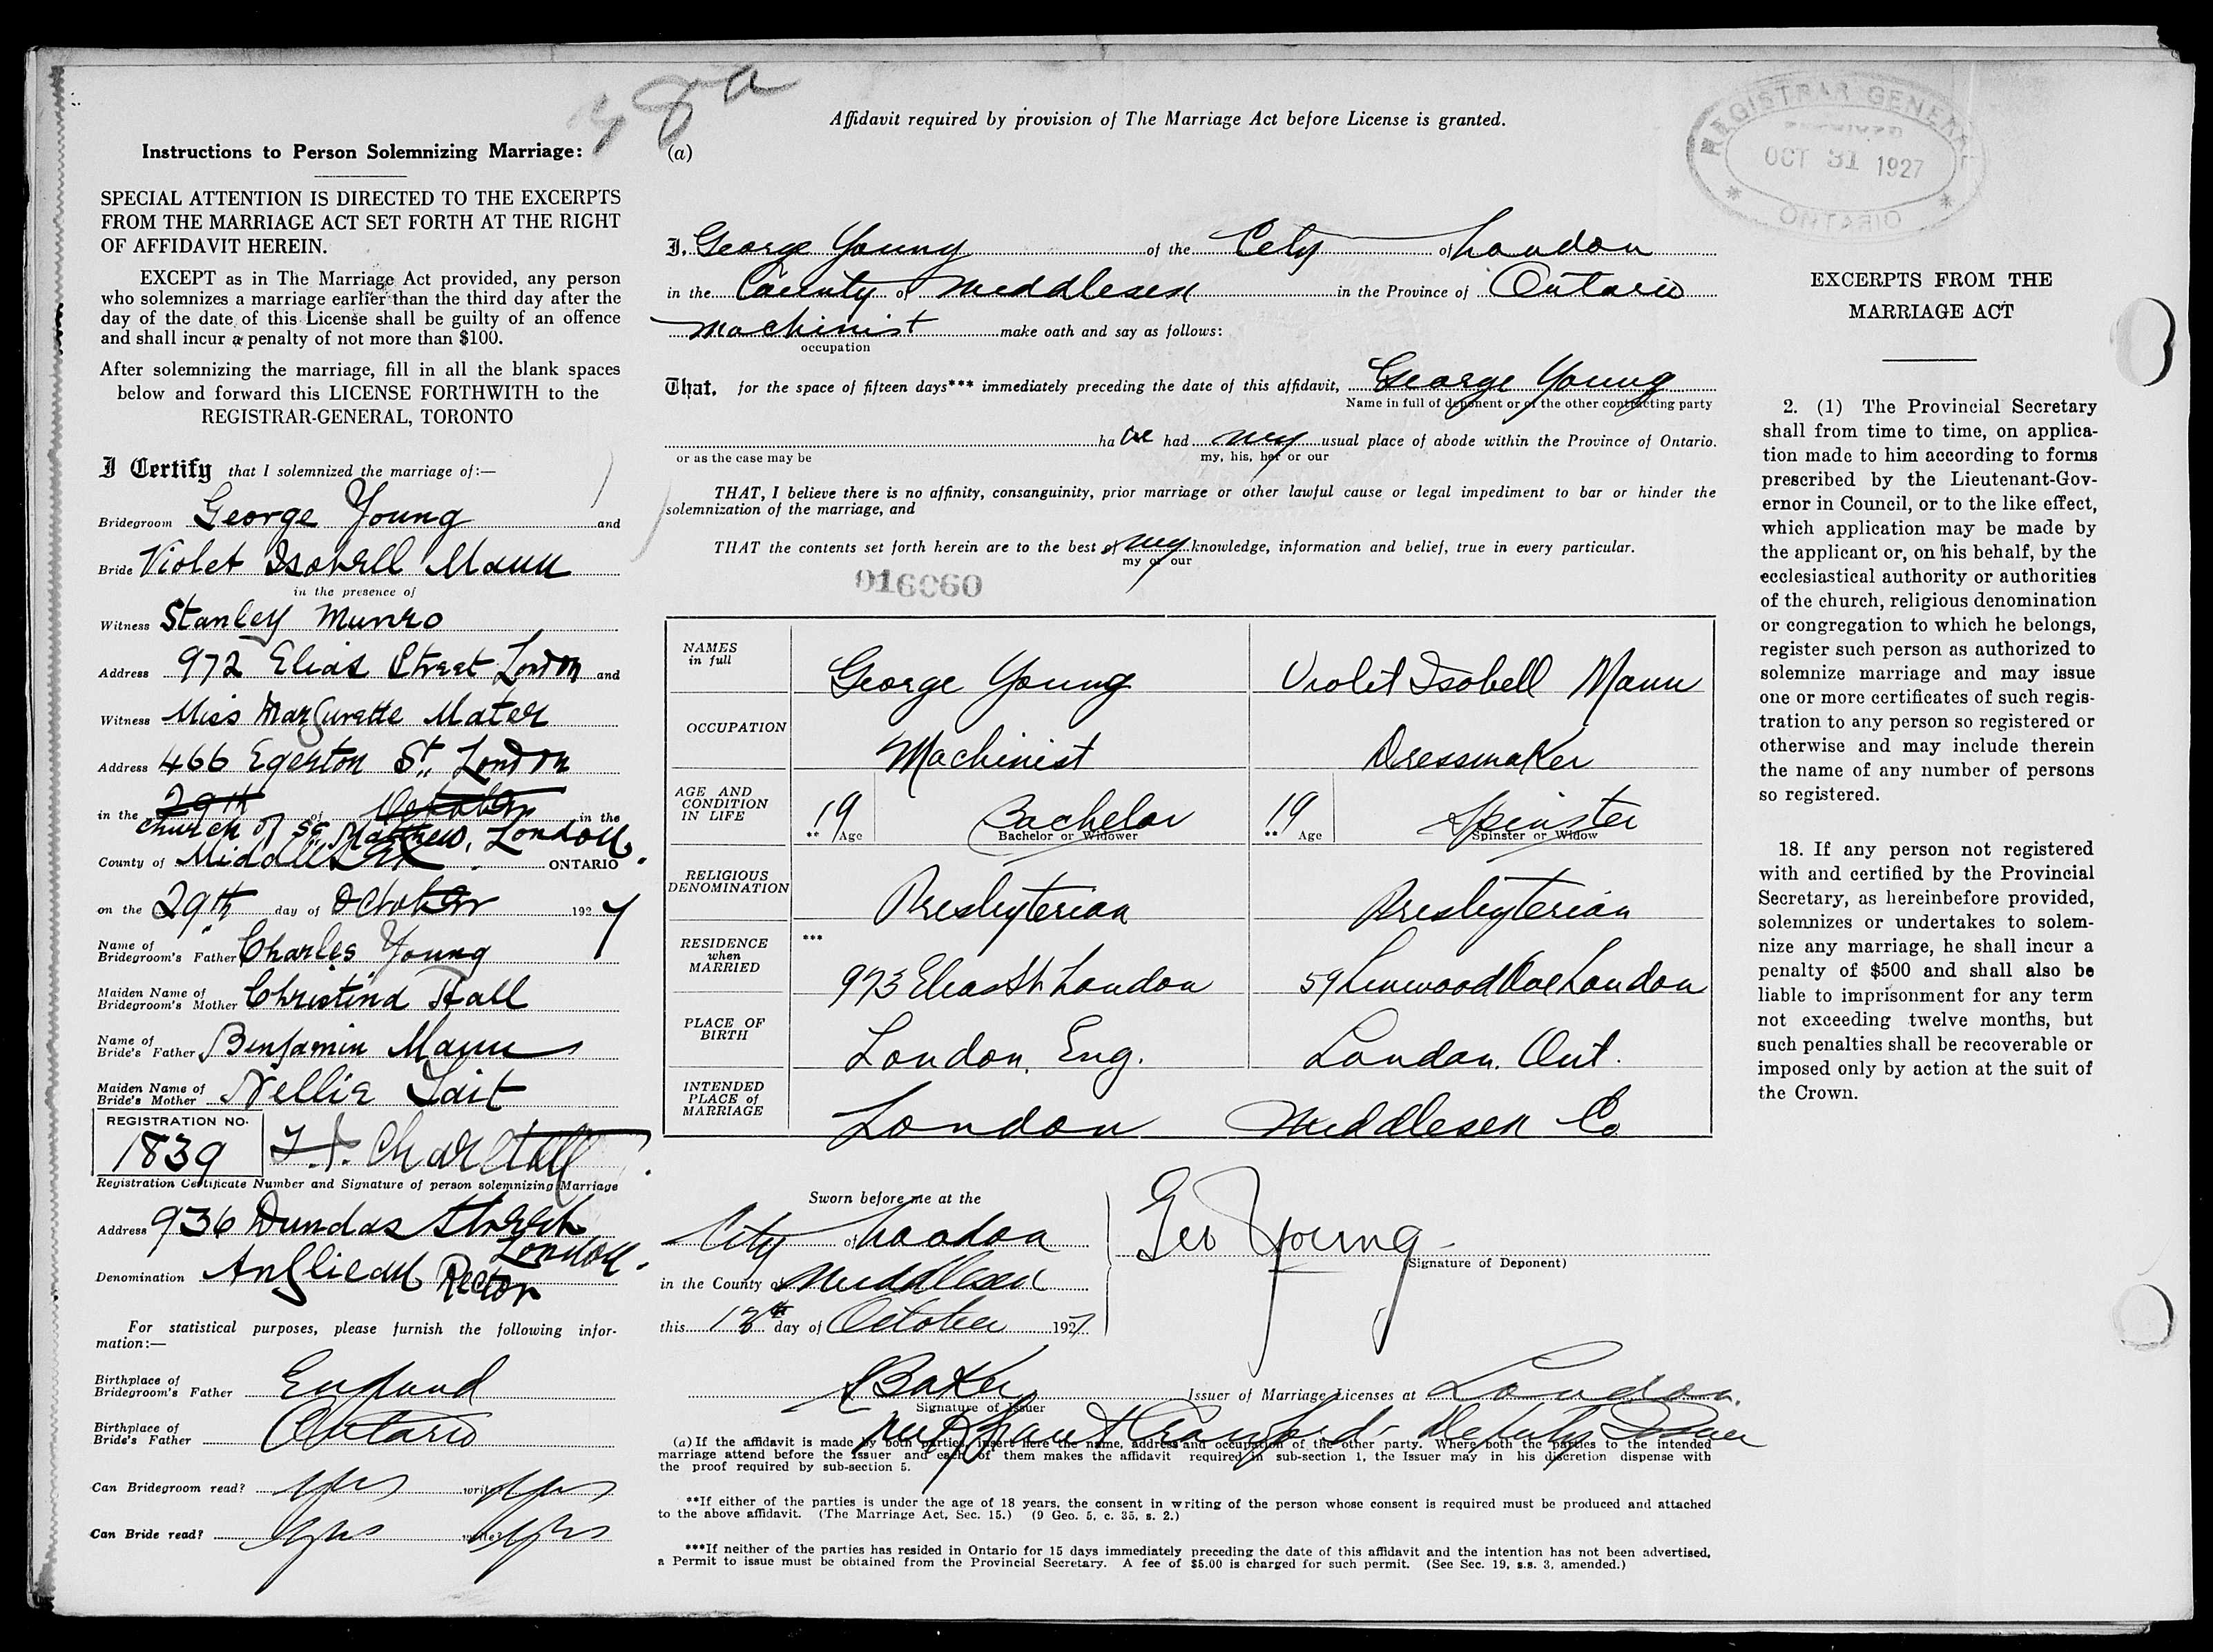 58a
Instructions to Person Solemnizing Marriage:
SPECIAL ATTENTION IS DIRECTED TO THE EXCERPTS
FROM THE MARRIAGE ACT SET FORTH AT THE RIGHT
OF AFFIDAVIT HEREIN.
EXCEPT as in The Marriage Act provided, any person
who solemnizes a marriage earlier than the third day after the
day of the date of this License shall be guilty of an offence
and shall incur a penalty of not more than $100.
After solemnizing the marriage, fill in all the blank spaces
below and forward this LICENSE FORTHWITH to the
REGISTRAR-GENERAL, TORONTO
I Certify that I solemnized the marriage of:—
Bridegroom George Young and
Bride Violet Isobell Mann
in the presence of
Witness Stanley Munro
Address 972 Elias Street London and
Witness Miss Margurette Mater
Address 466 Egerton St., London
in the 29th of October in the
Church of St. Matthew, London.
County of Middlesex ONTARIO
on the 29th day of October 1927
Name of
Bridegroom's Father Charles Young
Maiden Name of
Bridegroom's Mother Christina Hall
Name of
Bride's Father Benjamin Mann
Maiden Name of
Bride's Mother Nellie Tait
REGISTRATION NO.
1839
Registration Certificate Number and Signature of person solemnizing Marriage
Address 936 Dundas Street
London.
Denomination Anglican Rector
For statistical purposes, please furnish the following infor-
mation:—
Birthplace of
Bridegroom's Father England
Birthplace of
Bride's Father Ontario
Can Bridegroom read? yes write? yes
Can Bride read? yes write? yes
Affidavit required by provision of The Marriage Act before License is granted.
(a)
I, George Young of the City of London
in the County of Middlesex in the Province of Ontario
Machinist make oath and say as follows:
occupation
That, for the space of fifteen days*** immediately preceding the date of this affidavit, George Young
Name in full of deponent or of the other contracting party
have had my usual place of abode within the Province of Ontario.
or as the case may be my, his, her or our
THAT, I believe there is no affinity, consanguinity, prior marriage or other lawful cause or legal impediment to bar or hinder the
solemnization of the marriage, and
THAT the contents set forth herein are to the best of my knowledge, information and belief, true in every particular.
my or our
016060
NAMES
in full
George Young Violet Isobell Mann
OCCUPATION
Machinist Dressmaker
AGE AND
CONDITION
IN LIFE
19 Bachelor 19 Spinster
** Age Bachelor or Widower ** Age Spinster or Widow
RELIGIOUS
DENOMINATION
Presbyterian Presbyterian
RESIDENCE
when
MARRIED
***
973 Elias St London 59 Linwood Ave London
PLACE OF
BIRTH
London, Eng. London. Ont.
INTENDED
PLACE of
MARRIAGE
London Middlesex Co
Sworn before me at the
City of London
in the County of Middlesex
this 13th day of October 1927.
Geo Young
(Signature of Deponent)
Baker Issuer of Marriage Licenses at London.
Signature of Issuer
Grant Crawford - Deputy Issuer
(a) If the affidavit is made by both parties, insert here the name, address and occupation of the other party. Where both the parties to the intended
marriage attend before the Issuer and each of them makes the affidavit required in sub-section 1, the Issuer may in his discretion dispense with
the proof required by sub-section 5.
**If either of the parties is under the age of 18 years, the consent in writing of the person whose consent is required must be produced and attached
to the above affidavit. (The Marriage Act, Sec. 15.) (9 Geo. 5, c. 35, s. 2.)
***If neither of the parties has resided in Ontario for 15 days immediately preceding the date of this affidavit and the intention has not been advertised,
a Permit to issue must be obtained from the Provincial Secretary. A fee of $5.00 is charged for such permit. (See Sec. 19, s.s. 3, amended.)
REGISTRAR GENERAL
RECEIVED
OCT 31 1927
* ONTARIO *
EXCERPTS FROM THE
MARRIAGE ACT
2. (1) The Provincial Secretary
shall from time to time, on applica-
tion made to him according to forms
prescribed by the Lieutenant-Gov-
ernor in Council, or to the like effect,
which application may be made by
the applicant or, on his behalf, by the
ecclesiastical authority or authorities
of the church, religious denomination
or congregation to which he belongs,
register such person as authorized to
solemnize marriage and may issue
one or more certificates of such regis-
tration to any person so registered or
otherwise and may include therein
the name of any number of persons
so registered.
18. If any person not registered
with and certified by the Provincial
Secretary, as hereinbefore provided,
solemnizes or undertakes to solem-
nize any marriage, he shall incur a
penalty of $500 and shall also be
liable to imprisonment for any term
not exceeding twelve months, but
such penalties shall be recoverable or
imposed only by action at the suit of
the Crown.